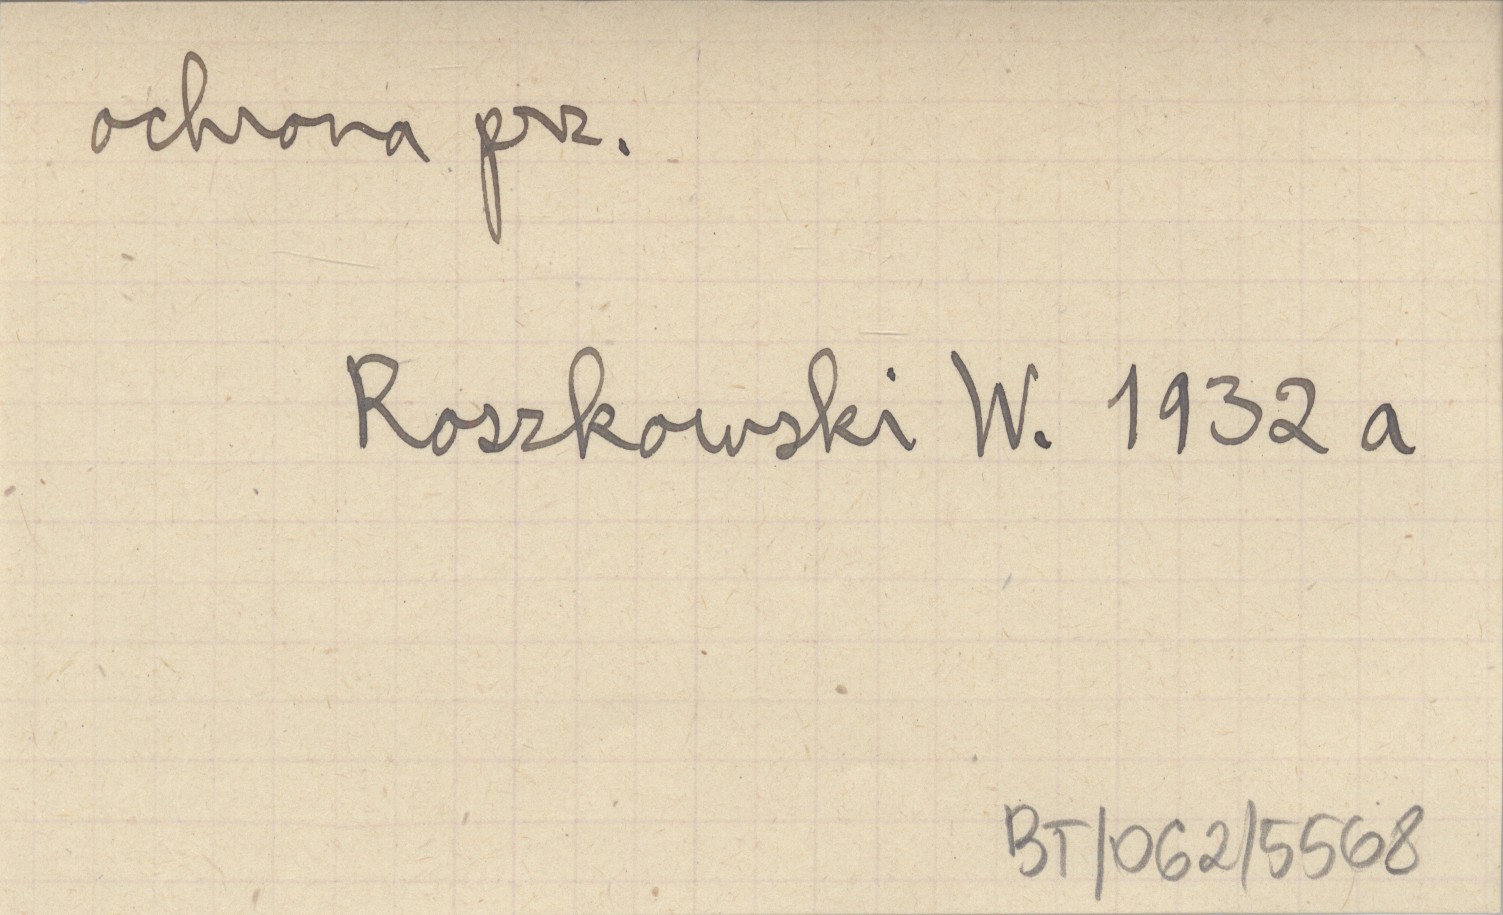 ochrona prz.
Roszkowski W. 1932 a
BT/062/5568